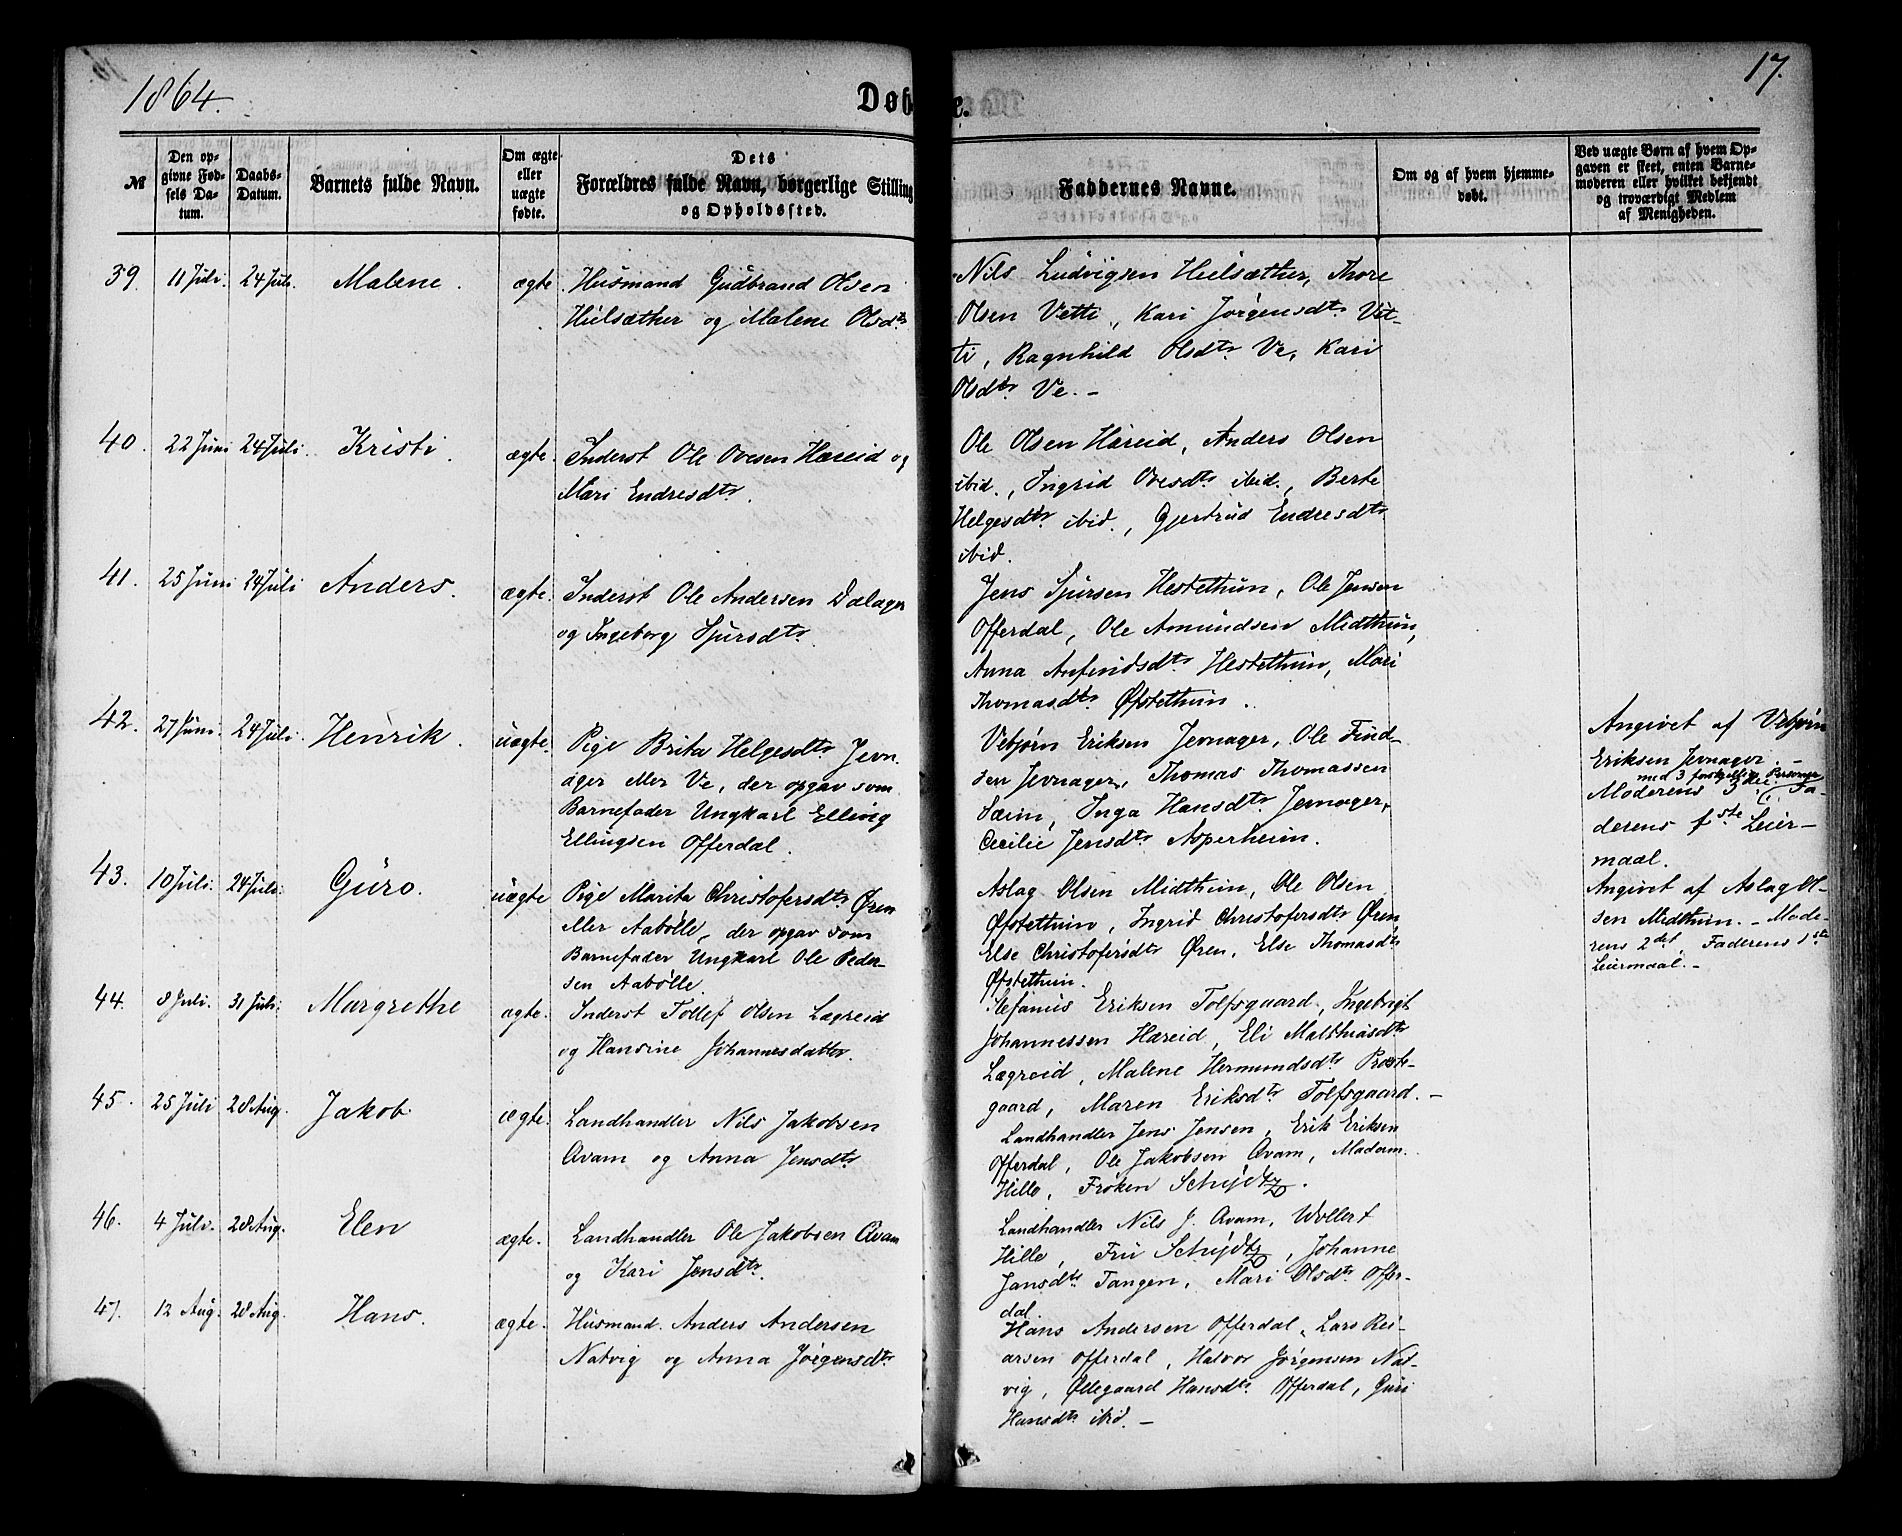 1864.
Døbte.
17.
№
Den opgivne Fødsels Datum.
Daabs-Datum.
Barnets fulde Navn.
Om ægte eller uægte fødte.
Dets Forældres fulde Navn, borgerlige Stilling og Opholdssted.
Faddernes Navne.
Om og af hvem hjemmedøbt.
Ved uægte Børn af hvem Opgaven er skeet, enten Barnemoderen eller hvilket bekjendt og troværdigt Medlem af Menigheden.
39. 11 Juli. 24 Juli. Malene. ægte.
Husmand Gudbrand Olsen
Hielsæther og Malene Olsdtr
Nils Ludvigsen Hielsæther, Thore
Olsen Vetti, Kari Jørgensdtr Vet-
ti, Ragnhild Olsdtr Ve, Kari
Olsdtr Ve. –
40. 22 Juni 24 Juli. Kristi. ægte.
Inderst Ole Ovesen Hæreid og
Mari Endresdtr.
Ole Olsen Hæreid, Anders Olsen
ibid., Ingrid Ovesdtr ibid., Berte
Helgesdtr ibid., Gjertrud Endresdtr
ibid.
41. 25 Juni 24 Juli Anders. ægte.
Inderst Ole Andersen Dalager
og Ingeborg Sjursdtr.
Jens Sjursen Hestethun, Ole Jensen
Offerdal, Ole Amundsen Midthun,
Anna Anfindsdtr Hestethun, Mari
Thomasdtr Øfstethun.
42. 27 Juni. 24 Juli. Henrik. uægte.
Pige Brita Helgesdtr Jevn-
ager eller Ve, der opgav som
Barnefader Ungkarl Elling
Ellingsen Offerdal.
Vebjørn Eriksen Jevnager, Ole Find-
sen Jevnager, Thomas Thomassen
Sæim, Inga Hansdtr Jevnager,
Cecilie Jensdtr Asperheim.
Angivet af Vebjørn
Eriksen Jevnager. –
med 3 forskjellige Personer
Moderens 3die, Fa-
derens 1ste Leier-
maal.
43. 10 Juli. 24 Juli. Guro. uægte
Pige Marita Christofersdtr Øren
eller Aabølle, der opgav som
Barnefader Ungkarl Ole Peder-
sen Aabølle.
Aslag Olsen Midthun, Ole Olsen
Øfstethun, Ingrid Christofersdtr Øren
Else Christofersdtr Øren, Else Thomasdtr
Øfstethun.
Angivet af Aslag Ol-
sen Midthun. – Mode-
rens 2det, Faderens 1ste
Leiermaal. –
44. 8 Juli. 31 Juli. Margrethe ægte.
Inderst Tollef Olsen Lægreid
og Hansine Johannesdatter.
Stefanus Eriksen Tolfsgaard, Ingebrigt
Johannessen Hæreid, Eli Matthiasdtr
Lægreid, Malene Hermundsdtr Præste-
gaard, Maren Eriksdtr Tolfsgaard. –
45. 25 Juli 28 Aug. Jakob ægte.
Landhandler Nils Jakobsen
Qvam og Anna Jensdtr.
Landhandler Jens Jensen, Erik Eriksen
Offerdal, Ole Jakobsen Qvam, Madam
Hille, Frøken Schydtz.
46. 4 Juli. 28 Aug. Elen ægte.
Landhandler Ole Jakobsen Qvam
og Kari Jensdtr.
Landhandler Nils J. Qvam, Wollert
Hille, Fru Schydtz, Johanne
Jansdtr Tangen, Mari Olsdtr Offer-
dal.
47. 12 Aug. 28 Aug. Hans. ægte.
Husmand Anders Andersen
Natvig og Anna Jørgensdtr
Hans Andersen Offerdal, Lars Rei-
arsen Offerdal, Halvor Jørgensen Nat-
vig, Øllegaard Hansdtr Offerdal, Guri
Hansdtr ibid. –